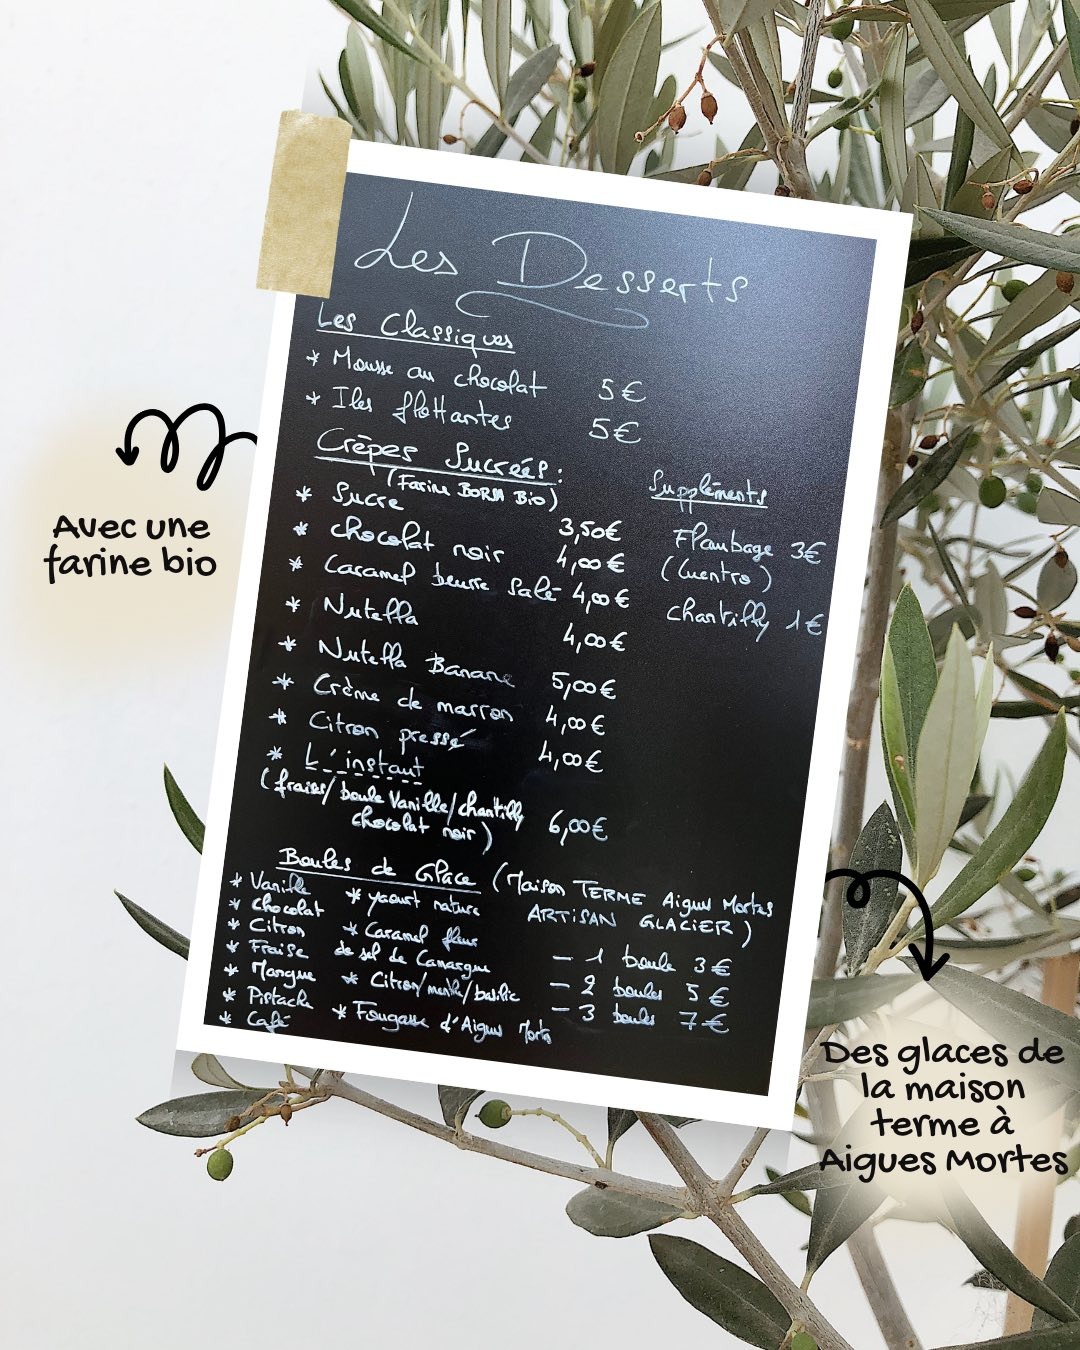 Les Desserts
Les Classiques
* Mousse au chocolat 5€
* Iles flottantes 5€
Crêpes Sucrées :
(Farine BORSA Bio)
* Sucre 3,50€
* chocolat noir 4,00€
* Caramel beurre salé 4,00€
* Nutella 4,00€
* Nutella Banane 5,00€
* Crème de marron 4,00€
* Citron pressé 4,00€
* L'instant
(fraises/boule Vanille/chantilly
chocolat noir) 6,00€
Suppléments
Flambage 3€
(Cuentro)
chantilly 1€
Boules de Glace (Maison TERME Aigues Mortes
ARTISAN GLACIER)
* Vanille
* chocolat
* Citron
* Fraise
* Mangue
* Pistache
* Café
* yaourt nature
* Caramel fleur
de sel de Camargue
* Citron/menthe/basilic
* Fougasse d'Aigues Mortes
- 1 boule 3€
- 2 boules 5€
- 3 boules 7€
Avec une
farine bio
Des glaces de
la maison
terme à
Aigues Mortes